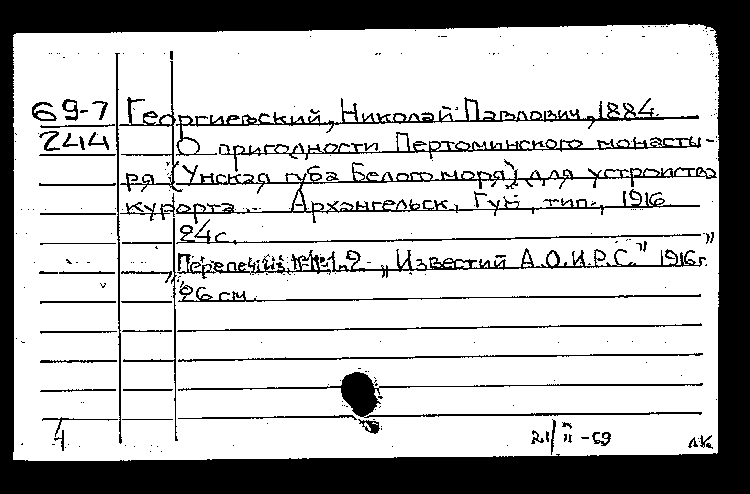 69-7 Георгиевский, Николай Павлович, 1884
244 О пригодности Пертоминского монасты-
ря (Унская губа Белого моря) для устройства
курорта.- Архангельск, Губ. тип., 1916
24 с.
„Перепеч. из №№1,2 „Известий А.О.И.Р.С." 1916г."
26 см.
4 21/II-69